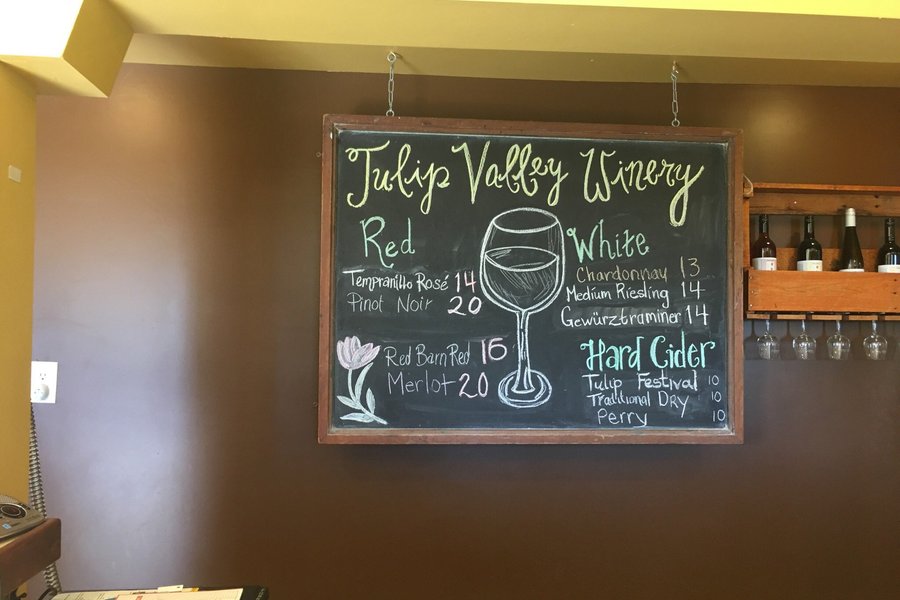 Tulip Valley Winery
Red
Tempranillo Rosé 14
Pinot Noir 20
Red Barn Red 16
Merlot 20
White
Chardonnay 13
Medium Riesling 14
Gewürztraminer 14
Hard Cider
Tulip Festival 10
Traditional Dry 10
Perry 10